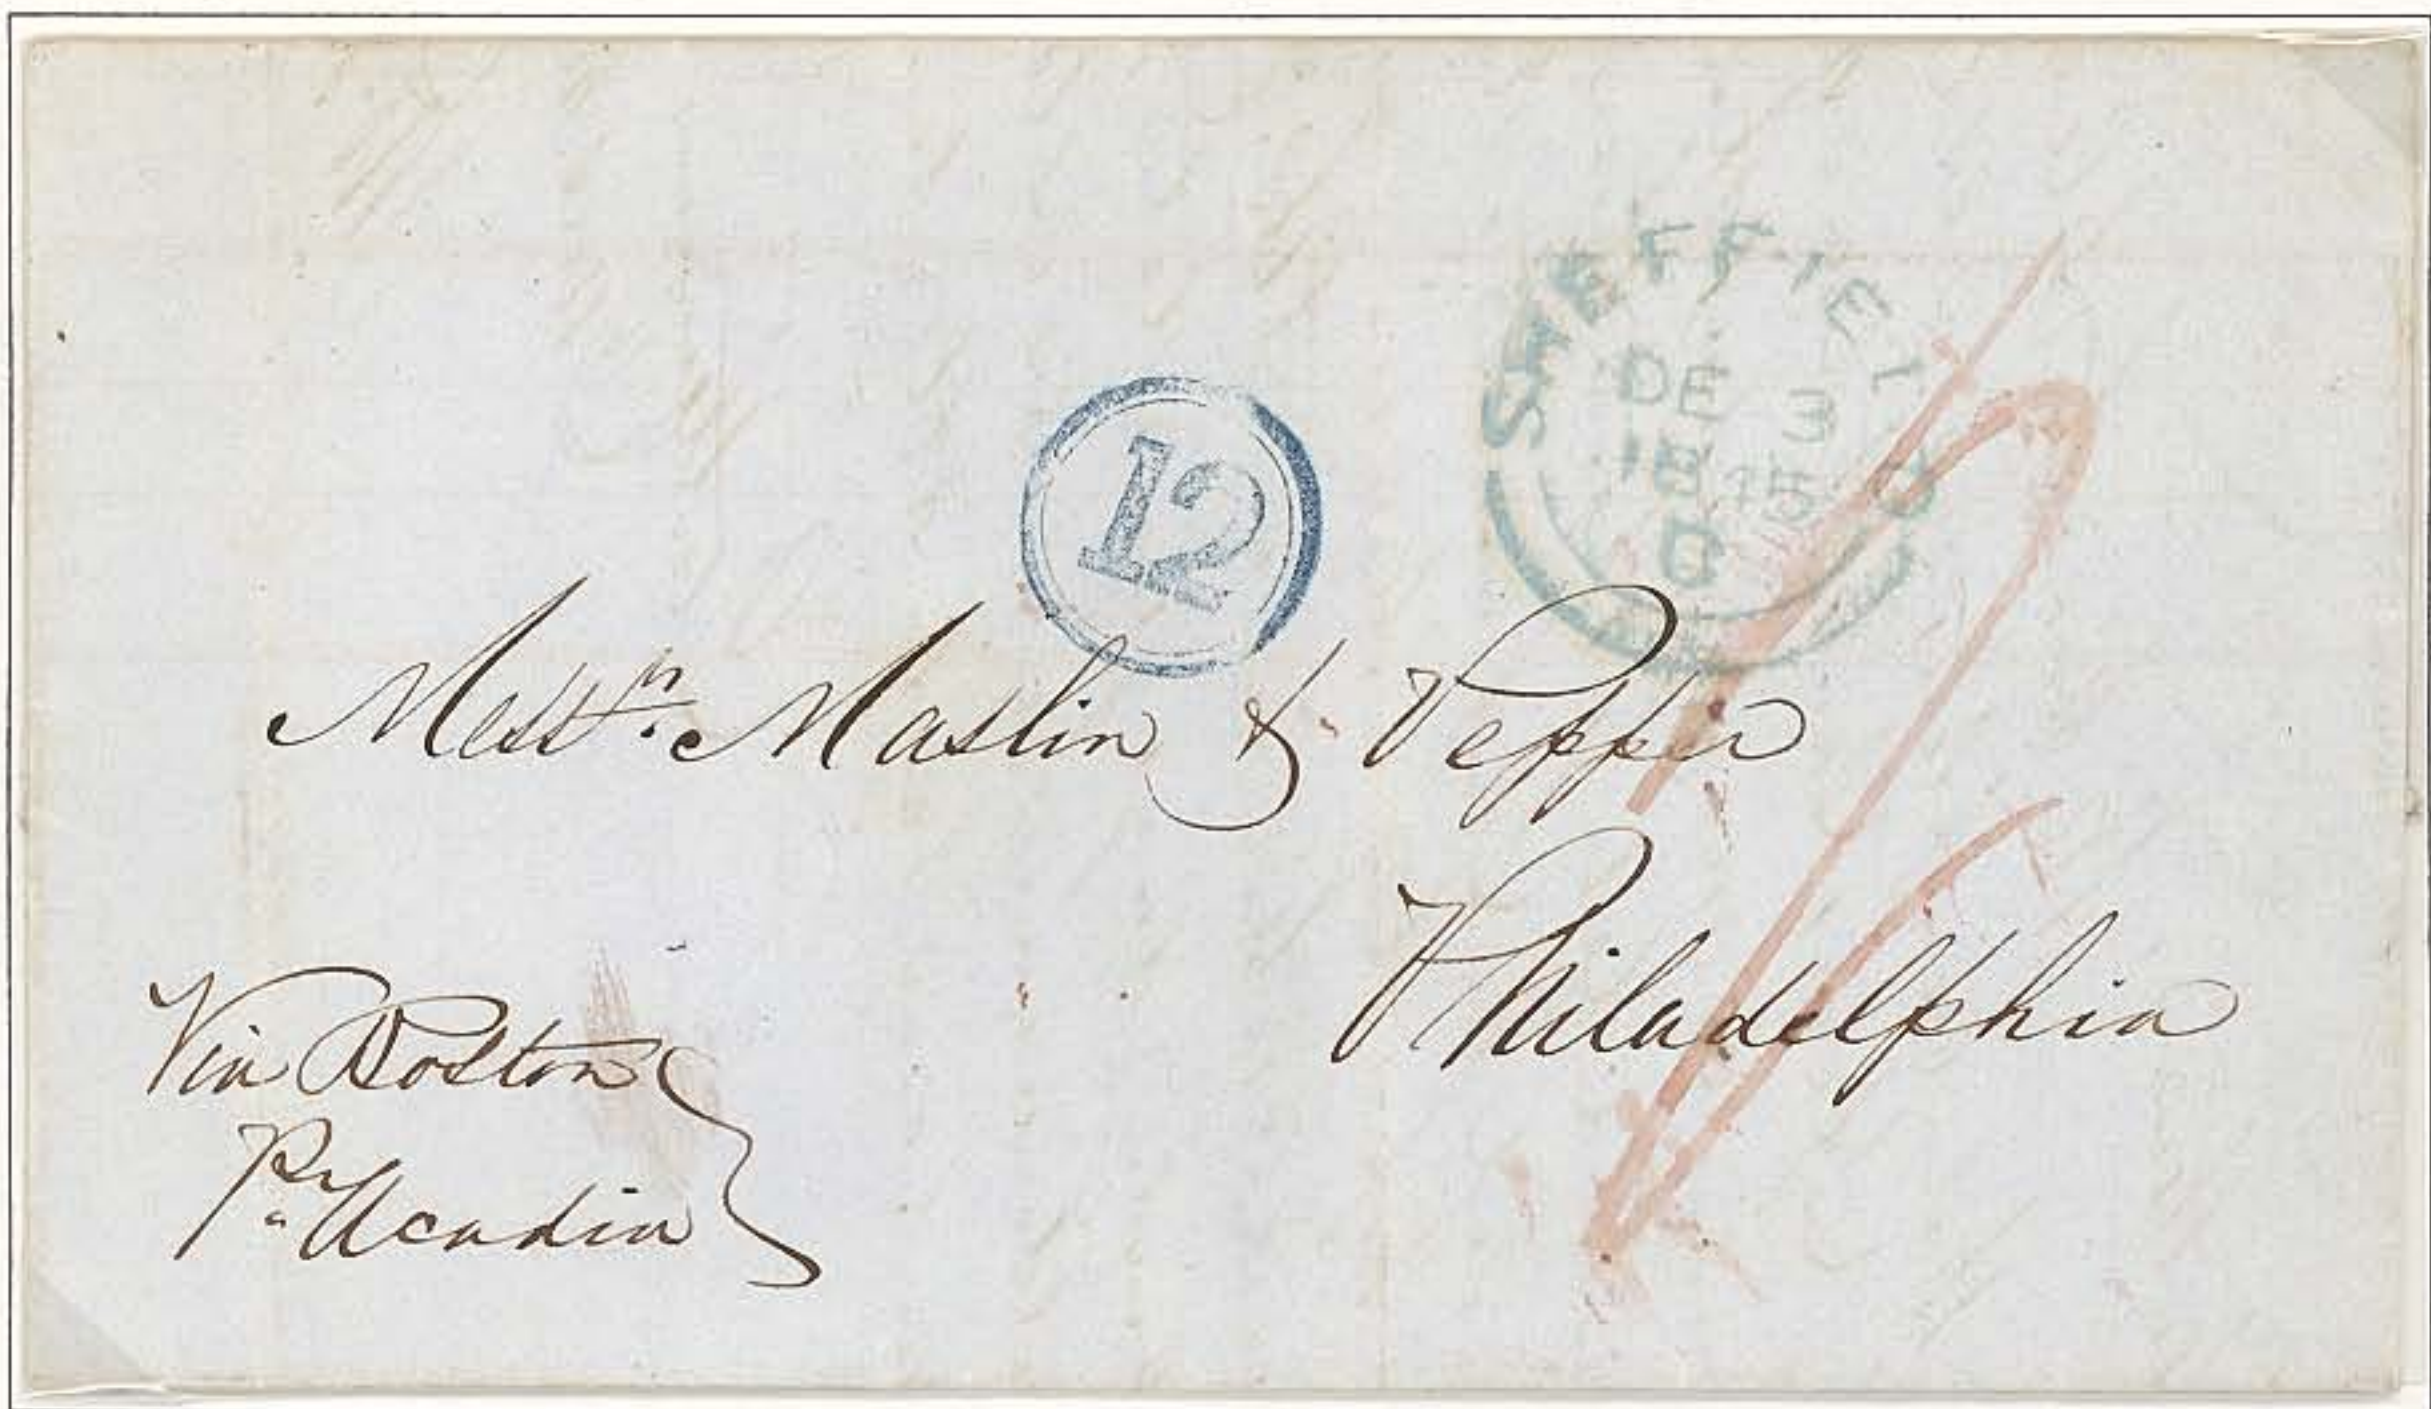 SHEFFIELD
DE 3
1845
D
12
Messrs. Maslin & Pepper
Philadelphia
Via Boston
Pr. Acadia